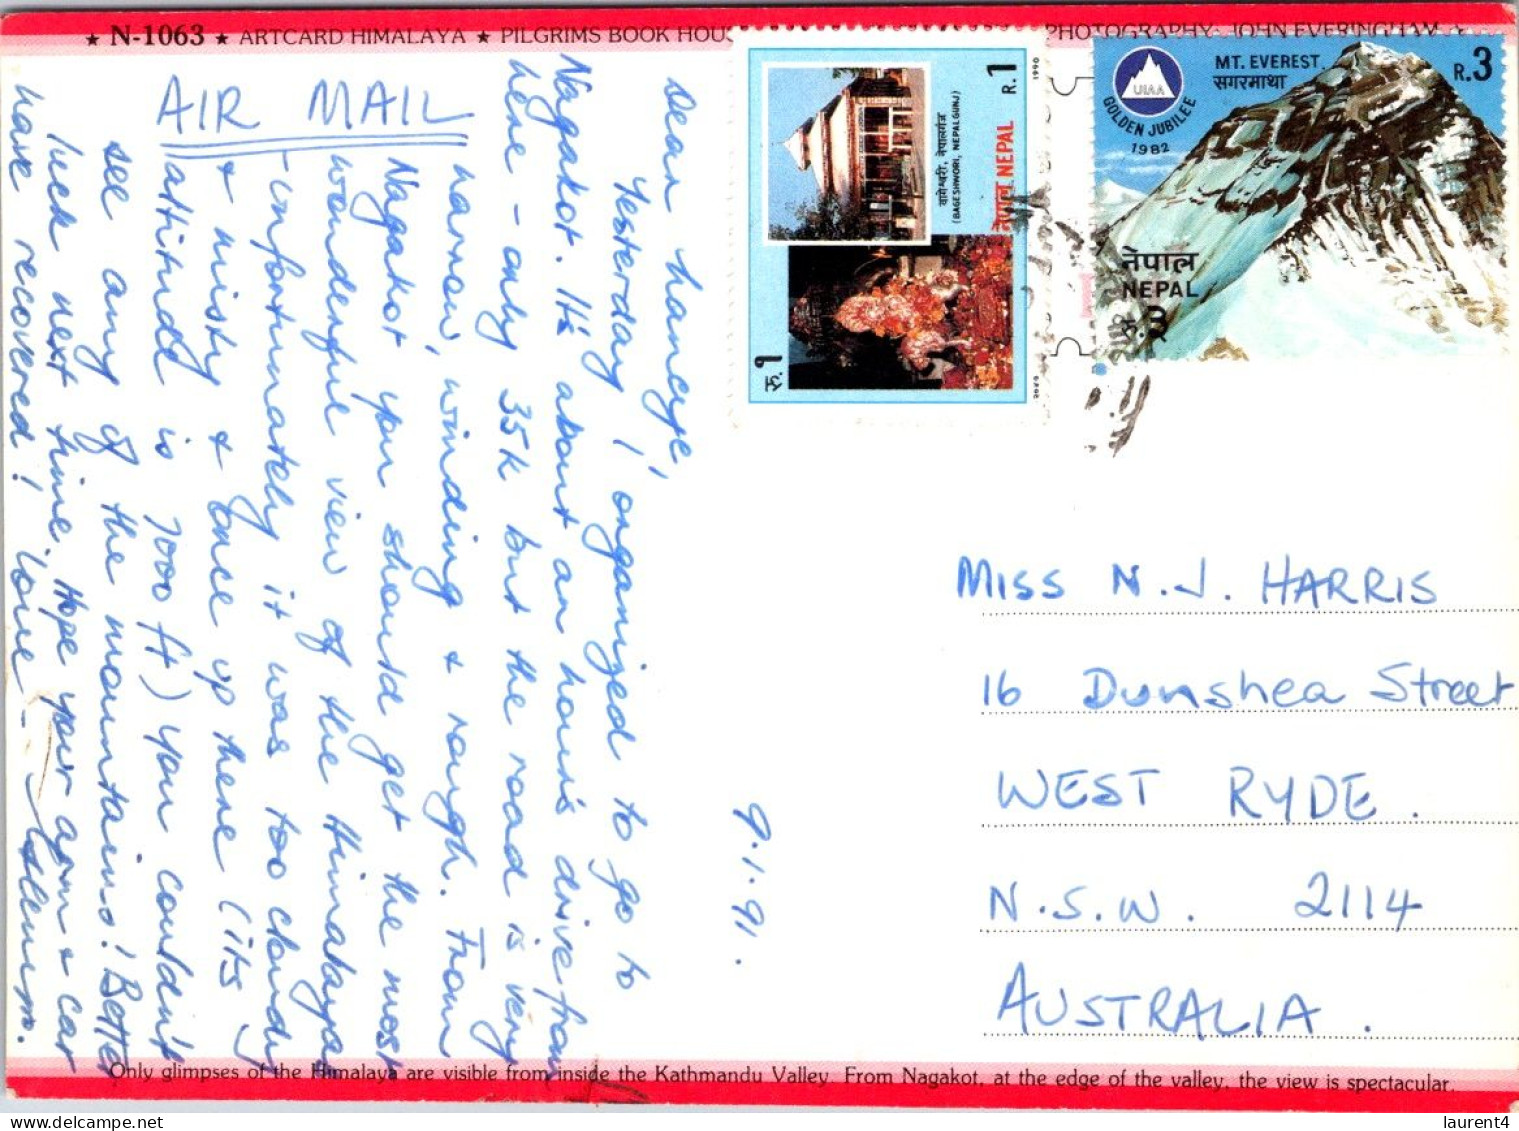 ★ N-1063 ★ ARTCARD HIMALAYA ★ PILGRIMS BOOK HOUS
PHOTOGRAPHY: JOHN EVERINGHAM ★
AIR MAIL
Dear Nancye,
Yesterday I organized to go to
Nagakot. It's about an hour's drive from
here - only 35k but the road is very
narrow, winding & rough. From
Nagakot you should get the most
wonderful view of the Himalayas
- unfortunately it was too cloudy
& misty & once up there (its
altitude is 7000 ft) you couldn't
see any of the mountains! Better
luck next time. Hope your arm & car
have recovered! Love -
9.1.91.
R.1
1990
वागेश्वरी, नेपालगंज
(BAGESHWORI, NEPALGUNJ)
नेपाल NEPAL
रु.१
२०४७
UIAA
GOLDEN JUBILEE
1982
MT. EVEREST.
सगरमाथा
R.3
नेपाल
NEPAL
रु.३
MISS N.J. HARRIS
16 Dunshea Street
WEST RYDE.
N.S.W. 2114
AUSTRALIA.
Only glimpses of the Himalaya are visible from inside the Kathmandu Valley. From Nagakot, at the edge of the valley, the view is spectacular.
laurent4